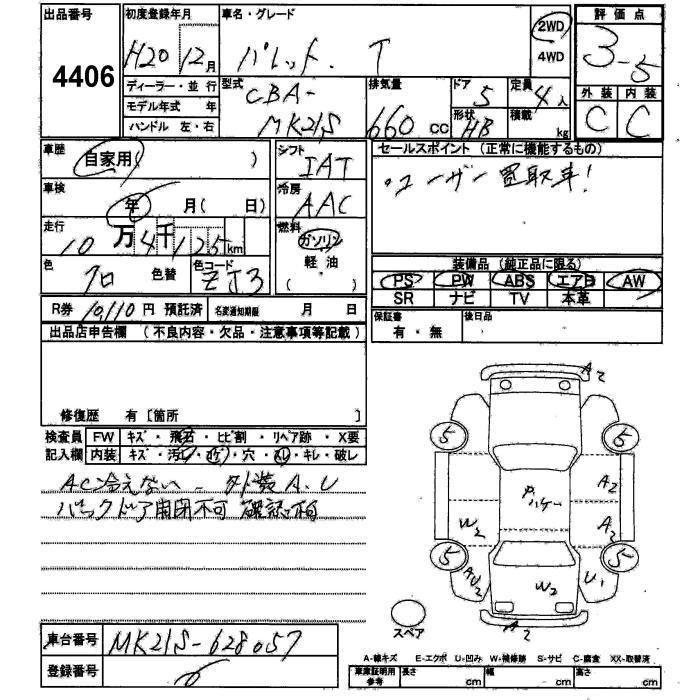 出品番号 4406
初度登録年月 H20 12月
車名・グレード パレット. T
2WD
4WD
評価点 3-5
ディーラー・並行
モデル年式 年
ハンドル 左・右
型式 CBA-
MK21S
排気量 660 cc
ドア 5
形状 HB
定員 4人
積載 kg
外装 内装
C C
車歴 自家用( )
車検 年 月( 日)
走行 10万4千125km
色 クロ 色替 色コード ZJ3
シフト IAT
冷房 AAC
燃料 ガソリン
軽油
( )
セールスポイント (正常に機能するもの)
・ユーザー買取車!
装備品 (純正品に限る)
PS PW ABS エアB AW
SR ナビ TV 本革
R券 10,110円 預託済 名変通知期限 月 日
保証書 有・無
後日品
出品店申告欄 (不良内容・欠品・注意事項等記載)
修復歴 有 [箇所 ]
検査員 FW キズ・飛石・ヒビ割・リペア跡・X要
記入欄 内装 キズ・汚レ・コゲ・穴・スレ・キレ・破レ
AC冷えない 外装A.U
バックドア開閉不可 確認不可
A2
5 5
A2
W2 A2
5 5
AU2 W2 U1
A2
スペア
車台番号 MK21S-628057
登録番号
A-線キズ E-エクボ U-凹み W-補修跡 S-サビ C-腐食 XX-取替済
車庫証明用参考 長さ cm 幅 cm 高さ cm